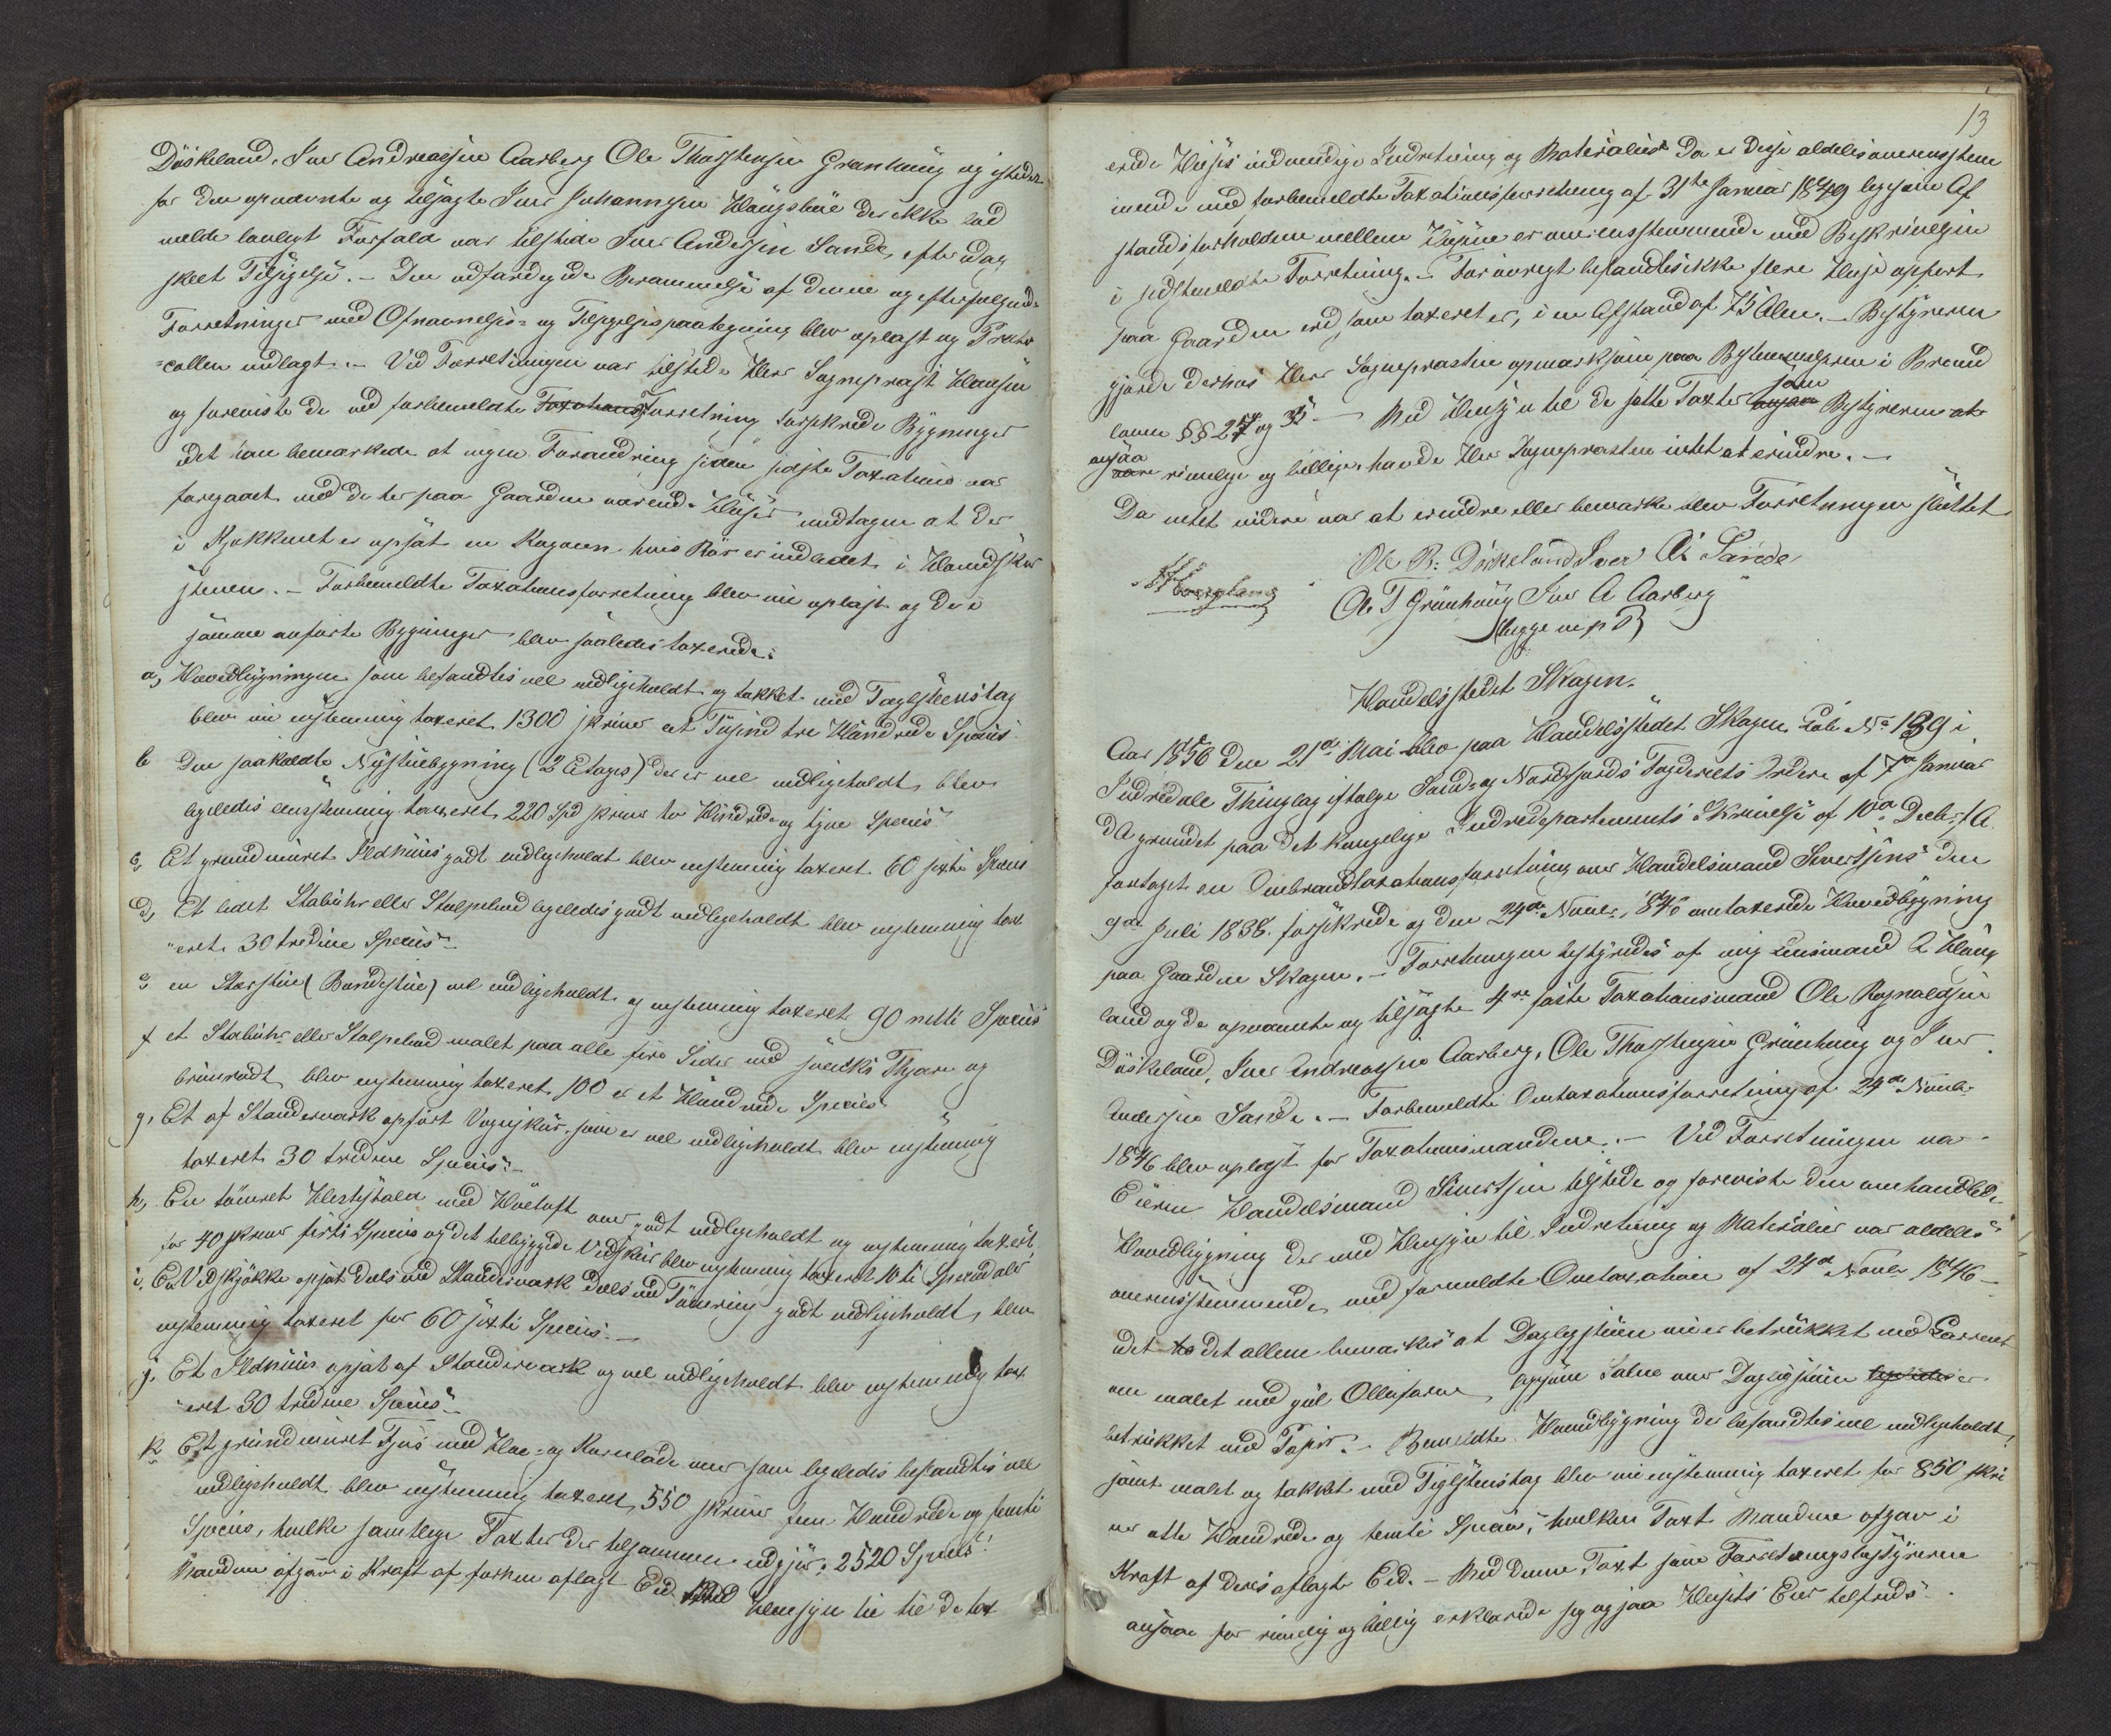 Döskeland, Iver Andreassen Aarberg Ole Thorstensen Grønhaug og istedet
for den opnævnte og tilsagte Iver Johannesen Haugsbøe der ikke lod
melde lovligt Forfald var tilstede Iver Andersen Sande, efter idag
skeet Tilsigelse. – Den udfærdigede Berammelse af denne og efterfølgende
Forretninger med Opnævnelses- og Tilsigelsespaategning blev oplæst og Proto
=collen vedlagt. – Ved Forretningen var tilstede Herr Sognepræst Hansen
og foreviste de ved forbemeldte Taxations Forretning forsikrede Bygninger
idet han bemærkede at ingen Forandring siden sidste Taxation var
foregaaet med de her paa Gaarden værende Huser undtagen at der
i Kjøkkenet er opsat en Kogeovn hvis Rør er indledet i Hovedskor
stenen. – Forbemeldte Taxationsforretning blev nu oplæst og de i
samme anførte Bygninger blev saaledes taxerede:
a, Hovedbygningen som befandtes vel vedligeholdt og takket med Tagsteenstag
blev nu eenstemmig taxeret 1300 skriver et Tusind tre Hundrede Species
b Den saakaldte Nystuebygning (2 Etages) der er vel vedligeholdt, blev
ligeledes eenstemmig taxeret 220 Spd skriver to Hundrede og tyve Species
c, Et grundmuret Ildhuus godt vedligeholdt blev enstemmig taxeret 60 sexti Species
d, Et lidet Stabuhr eller Stolpebod ligeledes godt vedligeholdt blev enstemmig tax
"eret 30 tredive Species
e, en Størstue (Bondestue) vel vedligeholdt og enstemmig taxeret 90 nitti Species
f et Stabuhr eller Stolpebod malet paa alle fire Sider med svensk Thjære og
bruunrødt blev enstemmig taxeret 100 er et Hundrede Species
g, Et af Standerværk opført Vognskuur, som er vel vedligeholdt blev enstemmig
taxeret 30 tredive Species. –
h, En tømret Hestestald med Høeloft over, godt vedligeholdt og enstemmig taxeret
for 40 skriver firti Species og det tilbyggede Vedskuur blev enstemmig taxeret 10 ti Speciedaler
i, En Vedskjøkke opsat deels med Standerværk deels med Tømring godt vedligeholdt, blev
enstemmig taxeret for 60 sexti Species. –
j. Et Ildhuus opsat af Standerværk og vel vedligeholdt blev enstemmig tax
"eret 30 tredive Species
k Et grundmuret Fjøs med Hoe- og Kornlade over som ligeledes befandtes vel
vedligeholdt blev enstemmig taxeret 550 skriver fem Hundrede og femti
Species, hvilke samtlige Taxter der tilsammen udgjør: 2520 Species!
Mændene afgav i Kraft af forhen aflagt Eed. Med Hensyn til de tax
13
erede Huses indvendige Indretning og Materialier da er disse aldeles overensstem
mende med forbemeldte Taxationsforretning af 31te Januar 1849 ligesom Af
standsforholdene mellem Husene er overensstemmende med Beskrivelsen
i sidstmeldte Forretning. – Forøvrigt befandtes ikke flere Huse opført
paa Gaarden end som taxeret er, i en Afstand af 75 Alen. – Bestyreren
gjorde derhos Herr Sognepræsten opmærksom paa Bestemmelserne i Brand
loven §§ 27 og 35 – Med Hensyn til de satte Taxter som Bestyreren
ansaa rimelige og billige, havde Herr Sognepræsten intet at erindre. –
Da intet videre var at erindre eller bemærke blev Forretningen sluttet
Ole R: Döskeland Iver A: Sande
A Haugland Ole T Grønhaug Iver A Aarberg
(begge m p P)
Handelsstedet Skagen.
Aar 1856 den 21de Mai blev paa Handelsstedet Skagen Løbe No 139 i
Indredale Thinglag ifølge Sønd- og Nordfjords Fogderiets Ordre af 7de Januar
d A grundet paa det kongelige Indredepartements Skrivelse af 10de Decbr f A
foretaget en Ombrandtaxationsforretning over Handelsmand Sivertsens den
9de Juli 1838. forsikrede og den 24de Novbr 1846 omtaxerede Hovedbygning
paa Gaarden Skagen. – Forretningen bestyredes af mig Lensmand A Haug
land og de opnævnte og tilsagte 4re faste Taxationsmænd Ole Ragnaldsen
Döskeland, Iver Andreassen Aarberg, Ole Thorstensen Grönhaug og Iver
Andersen Sande. – Forbemeldte Omtaxationsforretning af 24de Novbr
1846 blev oplæst for Taxationsmændene. – Ved Forretningen var
Eieren Handelsmand Sivertsen tilstede og foreviste den omhandlede
Hovedbygning der med Hensyn til Indretning og Materialier var aldeles
overensstemmende med formeldte Omtaxation af 24de Novbr 1846 –
idet det allene bemærkes at Dagligstuen nu er betrukket med Lærret
om malet med guul Olliefarve, ligesom Salen over Dagligstuen ligeledes er
betrukket med Papir. – Bemeldte Hovedbygning der befandtes vel vedligeholdt
samt malet og takket med Teglsteenstag blev nu enstemmig taxeret for 850 skri
ver otte Hundrede og femti Species, hvilken Taxt Mændene afgav i
Kraft af deres aflagte Eed. – Med denne Taxt som Forretningsbestyreren
ansaae for rimelig og billig erklærede sig ogsaa Husets Eier tilfreds –